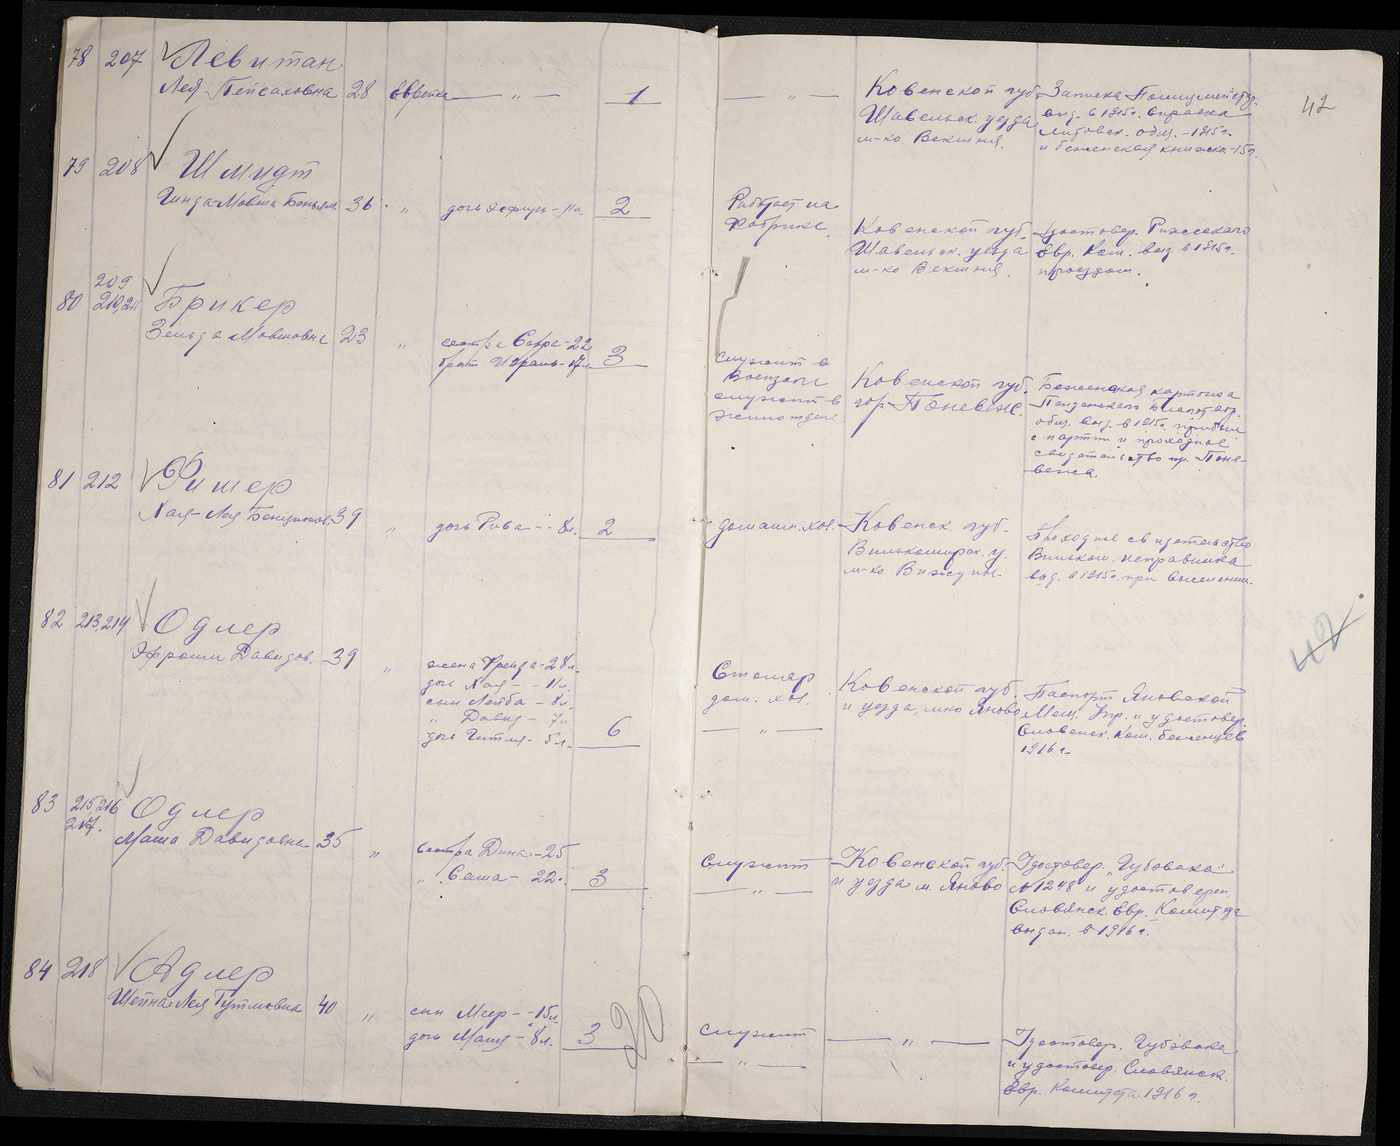 78 207 Левитан
Лея Пейсаховна 28 еврейка — „ — 1 — „ — Ковенской губ. Записка Полицмейстер.
Шавельск. уезда выд. в 1915г. справка
м-ко Векшня. Литовск. общ. - 1915г.
и беженская книжка - 15г.
42
79 208 Шмидт
Гинда-Мовша 36 „ дочь 2
Работает на
фабрике.
Ковенской губ. Удостовер. Рижского
Шавельск. уезда Евр. Ком. выд. в 1915г.
м-ко Векшня. проездом.
209
80 210, 211 Брикер
Зельда Мовшовна 23 „ сестра Сора - 22
брат Израиль - 17л. 3
служит в
служит в
Ковенской губ.
гор. Поневеж.
Беженская карточка
общ. выд. в 1915г.
и проходное
свидетельство пр. Поне-
вежа.
81 212 Фишер
Хая-Лея 39 „ дочь Рива - 8л. 2 домашн. хоз. Ковенск. губ.
Вилькомирск. у.
м-ко Вижуны.
Проходное свидетельство
Вилком. исправника
выд. в 1915г. при выселении.
82 213, 214 Одлер
Эфроим Давидов. 39 „ жена Фрейда - 28л.
дочь Хая - 11л.
сын Лейба - 8л.
„ Давид - 7л.
дочь Гитля - 5л. 6
Столяр
дом. хоз.
— „ —
Ковенской губ.
и уезда, м-ко Яново
Паспорт Яновской
Мещ. Упр. и удостовер.
Словянск. Ком. беженцев
1916г.
42
83 215, 216 Одлер
217.
Маша Давидовна 35 „ Сестра Дина - 25
„ Саша - 22. 3
служит
— „ —
Ковенской губ.
и уезда м. Яново
Удостовер. „Губэвака"
№ 1248 и удостоверен
Словянск. Евр. Комитета
выдан. в 1916г.
84 218 Адлер
Шейна Лея 40 „ сын Меер - 15л.
дочь Маша - 8л. 3
20
служит
— „ —
— „ —
Удостовер. Губэвака
и удостовер. Словянск.
Евр. Комитета 1916г.